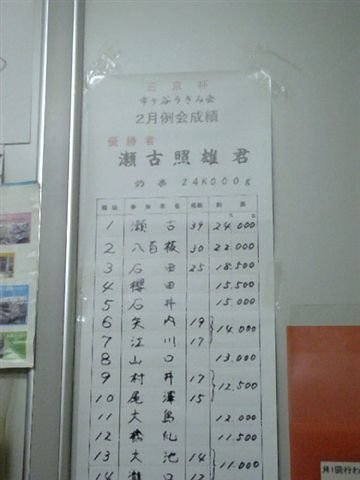 三京杯
市ヶ谷うきみ会
2月例会成績
優勝者
瀬古照雄君
釣果 24K000g
順位 参加者名 枚数 釣果
1 瀬古 39 24.000
2 八百板 30 22.000
3 石田 25 18.500
4 櫻田 15.500
5 石井 15.000
6 矢内 19
14.000
7 江川 17
8 山口 13.000
9 村井 17
12.500
10 尾澤 15
11 大島 12.000
12 橋 11.500
13 大池 14
11.000
14 瀧口 12
月1回行わ